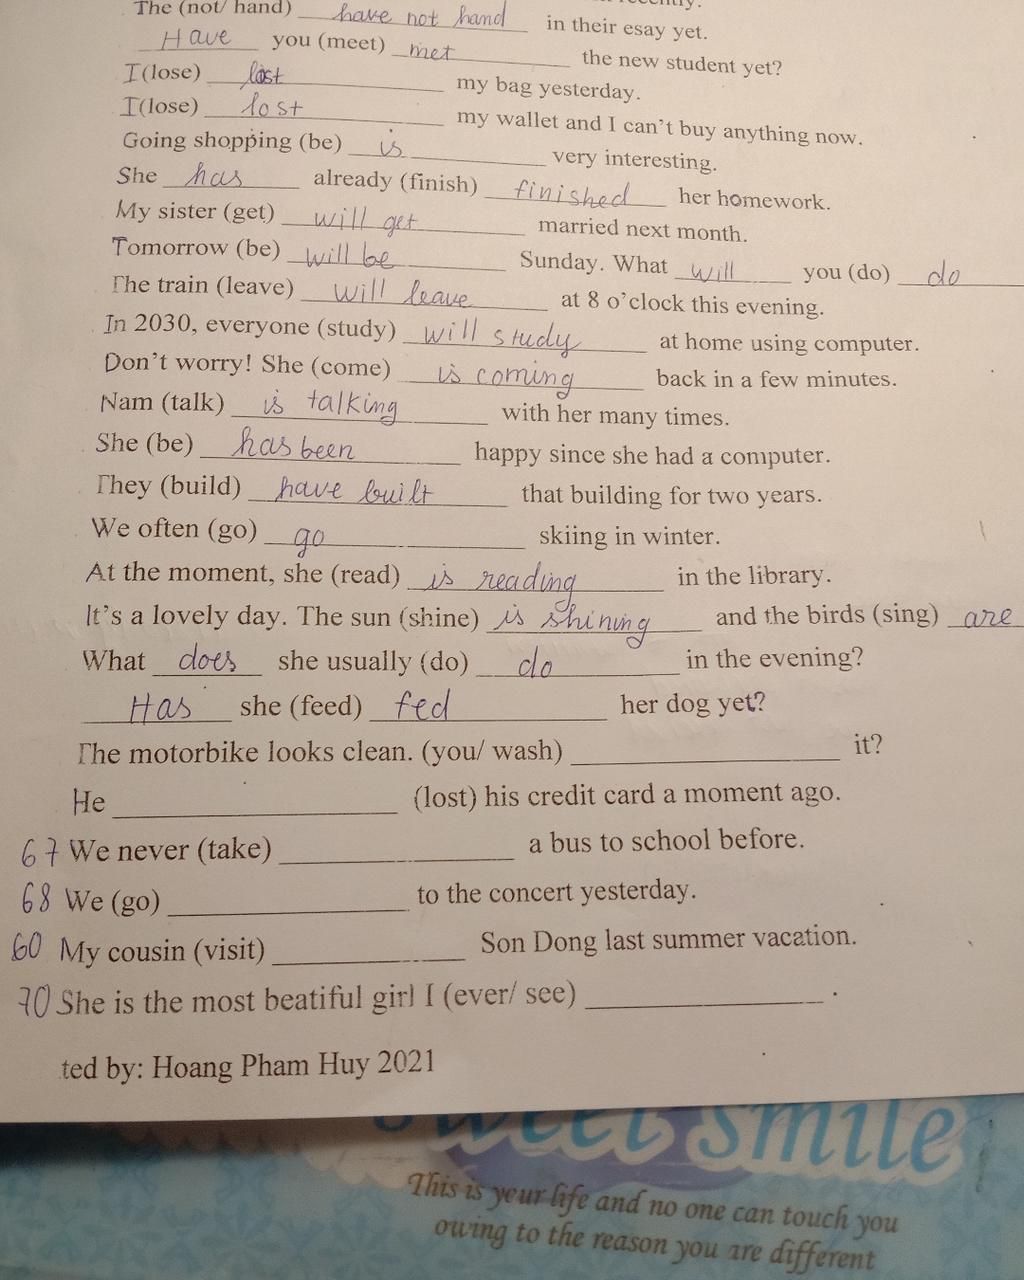 The (not/ hand) have not hand in their esay yet.
Have you (meet) met the new student yet?
I (lose) lost my bag yesterday.
I (lose) lost my wallet and I can't buy anything now.
Going shopping (be) is very interesting.
She has already (finish) finished her homework.
My sister (get) will get married next month.
Tomorrow (be) will be Sunday. What will you (do) do
The train (leave) will leave at 8 o'clock this evening.
In 2030, everyone (study) will study at home using computer.
Don't worry! She (come) is coming back in a few minutes.
Nam (talk) is talking with her many times.
She (be) has been happy since she had a computer.
They (build) have built that building for two years.
We often (go) go skiing in winter.
At the moment, she (read) is reading in the library.
It's a lovely day. The sun (shine) is shining and the birds (sing) are
What does she usually (do) do in the evening?
Has she (feed) fed her dog yet?
The motorbike looks clean. (you/ wash) it?
He (lost) his credit card a moment ago.
67 We never (take) a bus to school before.
68 We (go) to the concert yesterday.
60 My cousin (visit) Son Dong last summer vacation.
70 She is the most beatiful girl I (ever/ see) .
ted by: Hoang Pham Huy 2021
sweet smile
This is your life and no one can touch you
owing to the reason you are different